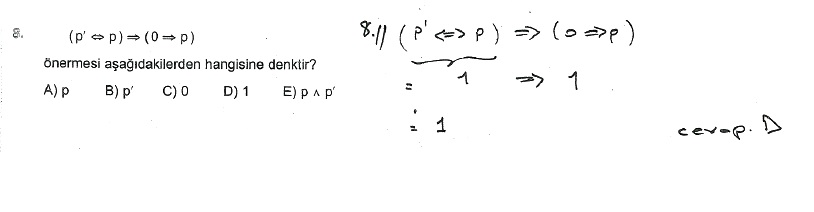 8.
(p' ⇔ p) ⇒ (0 ⇒ p)
önermesi aşağıdakilerden hangisine denktir?
A) p B) p' C) 0 D) 1 E) p ∧ p'
8.// (p' <=> p) => (0 => p)
= 1 => 1
= 1
cevap. D